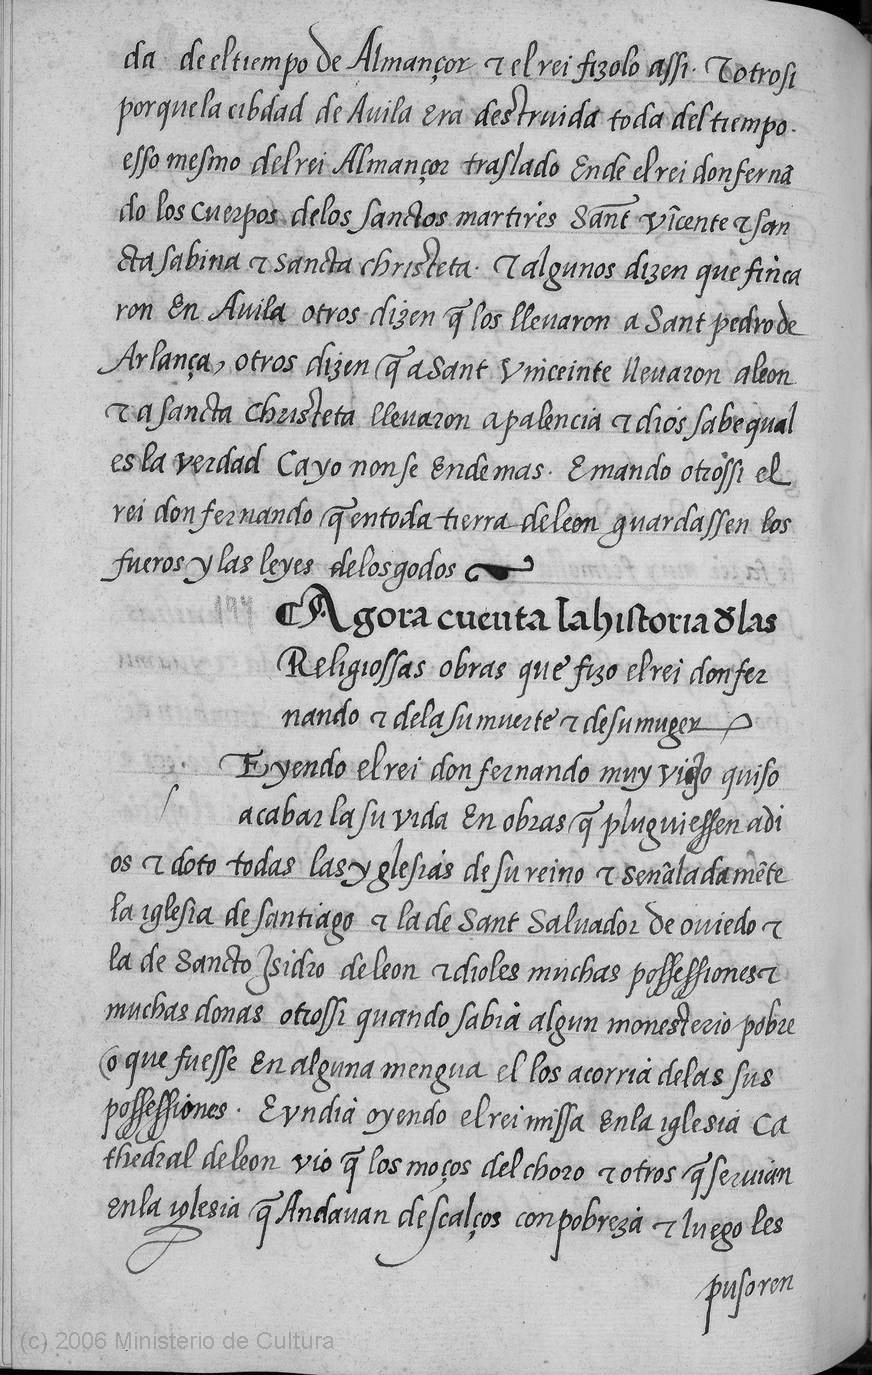 da de el tiempo de Almançor ⁊ el rei fizolo assi. ⁊ otrosi
porque la cibdad de Auila era destruida toda del tiempo.
esso mesmo del rei Almançor traslado Ende el rei don fernā
do los cuerpos delos sanctos martires Sant̄ vīcente ⁊ san
cta sabina ⁊ sancta christeta. ⁊ algunos dizen que finca
ron En Auila otros dizen q̄ los lleuaron a Sant pedro de
Arlança, otros dizen q̄ a Sant Vinceinte lleuaron a leon
⁊ a sancta Christeta lleuaron a palencia ⁊ dios sabe qual
es la verdad Ca yo non se Ende mas. E mando otrossi el
rei don fernando q̄ en toda tierra de leon guardassen los
fueros y las leyes delos godos
Agora cuenta la historia d̄las
Religiossas obras que fizo el rei don fer
nando ⁊ dela su muerte ⁊ de su muger
Eyendo el rei don fernando muy viejo quiso
acabar la su vida En obras q̄ pluguiessen a di
os ⁊ doto todas las yglesias de su reino ⁊ senāladamēte
la iglesia de santiago ⁊ la de Sant Saluador de ouiedo ⁊
la de Sancto Isidro de leon ⁊ dioles muchas possessiones ⁊
muchas donas otrossi quando sabia algun monesterio pobre
o que fuesse En alguna mengua el los acorria delas sus
possessiones. E vn dia oyendo el rei missa en la iglesia Ca
thedral de leon vio q̄ los moços del choro ⁊ otros q̄ seruian
Enla iglesia q̄ Andauan descalços con pobreza ⁊ luego les
pusoren
(c) 2006 Ministerio de Cultura